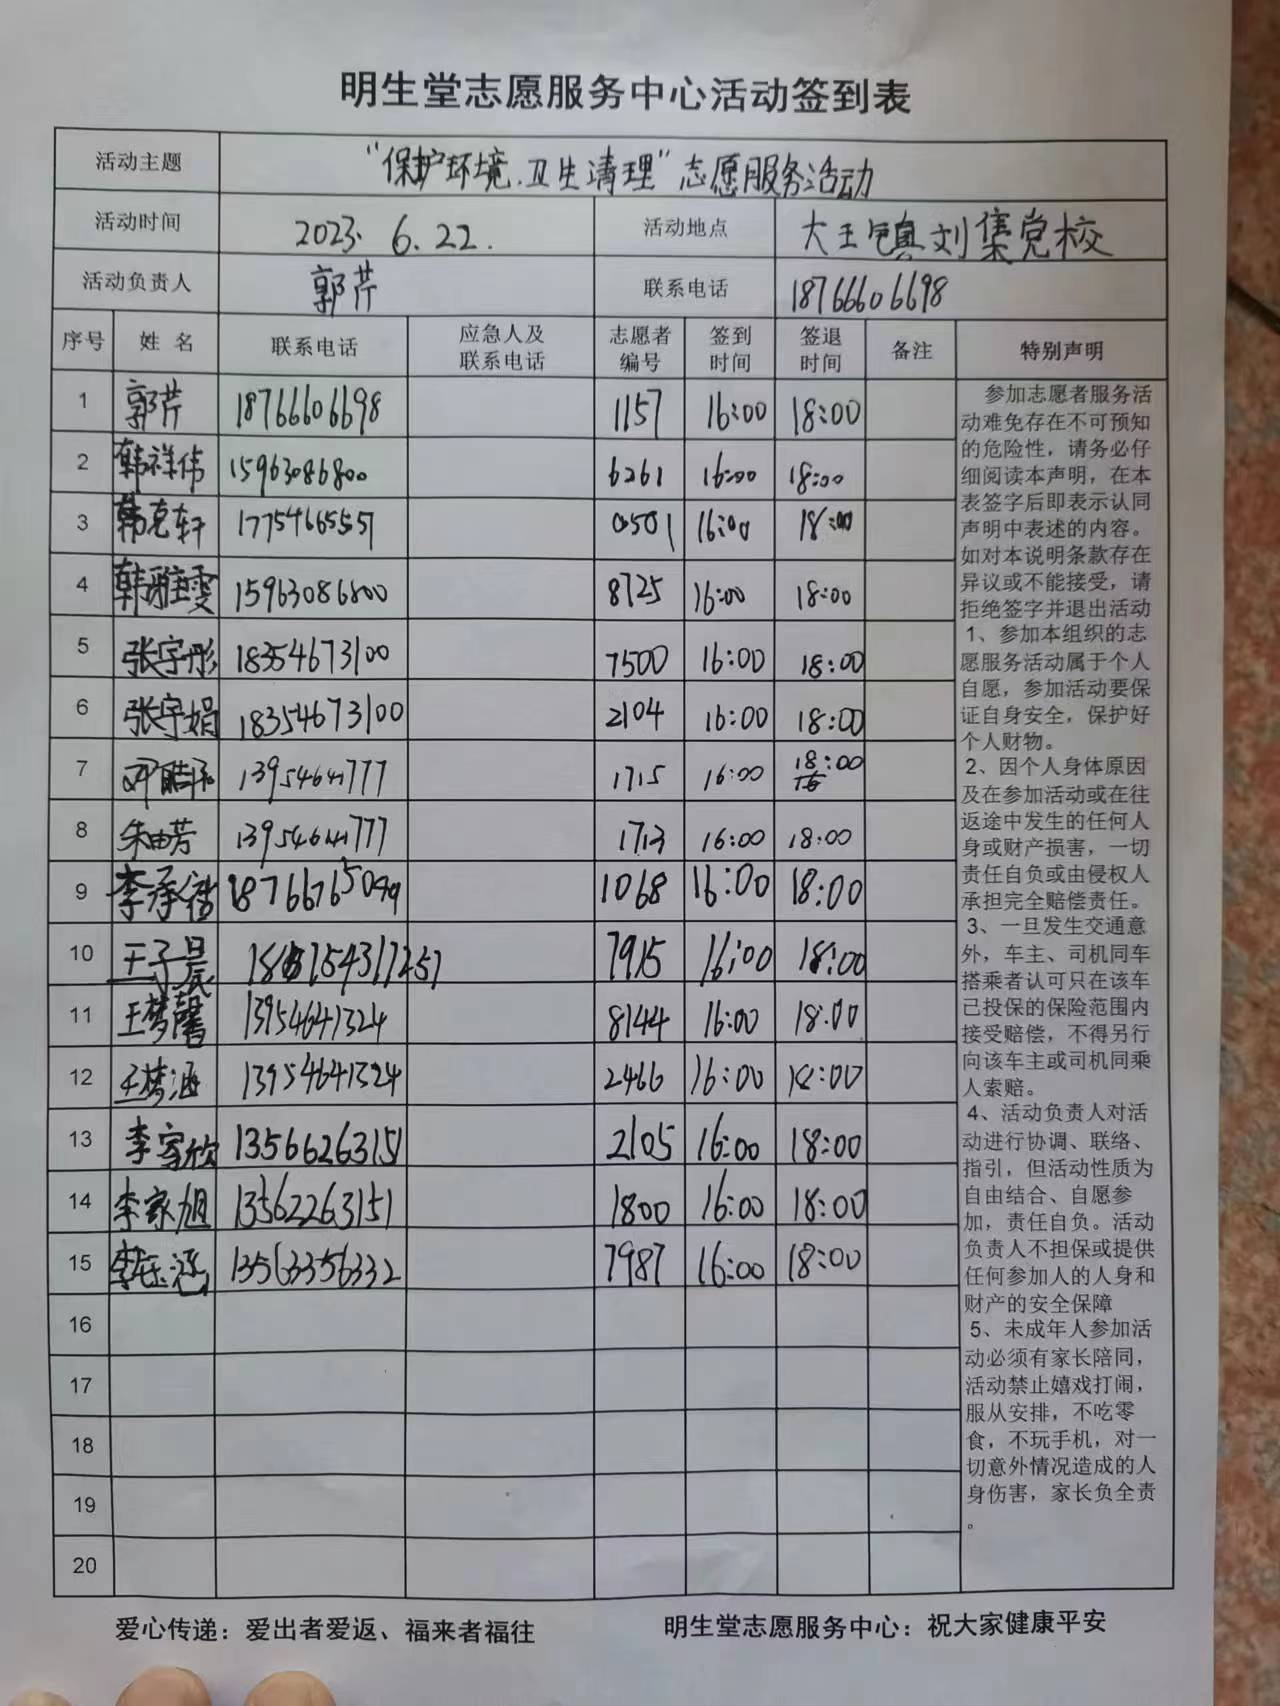 明生堂志愿服务中心活动签到表
活动主题 “保护环境.卫生清理”志愿服务活动
活动时间 2023. 6. 22. 活动地点 大王镇刘集党校
活动负责人 郭芹 联系电话 18766606698
序号 姓名 联系电话 应急人及联系电话 志愿者编号 签到时间 签退时间 备注 特别声明
1 郭芹 18766606698 1157 16:00 18:00
2 韩祥伟 15963086800 6261 16:00 18:00
3 韩克轩 17754665551 0501 16:00 18:00
4 韩雅雯 15963086800 8725 16:00 18:00
5 张宇彤 18354673100 7500 16:00 18:00
6 张宇娟 18354673100 2104 16:00 18:00
7 13954641777 1715 16:00 18:00
8 朱由芳 13954641777 1713 16:00 18:00
9 李承 1876676 1068 16:00 18:00
10 王子晨 7915 16:00 18:00
11 王梦馨 13954641324 8144 16:00 18:00
12 王梦涵 13954641324 2466 16:00 18:00
13 李家欣 13566263151 2105 16:00 18:00
14 李家旭 13562263151 1800 16:00 18:00
15 李钰涵 13563356332 7987 16:00 18:00
16
17
18
19
20
参加志愿者服务活
动难免存在不可预知
的危险性，请务必仔
细阅读本声明，在本
表签字后即表示认同
声明中表述的内容。
如对本说明条款存在
异议或不能接受，请
拒绝签字并退出活动
1、参加本组织的志
愿服务活动属于个人
自愿，参加活动要保
证自身安全，保护好
个人财物。
2、因个人身体原因
及在参加活动或在往
返途中发生的任何人
身或财产损害，一切
责任自负或由侵权人
承担完全赔偿责任。
3、一旦发生交通意
外，车主、司机同车
搭乘者认可只在该车
已投保的保险范围内
接受赔偿，不得另行
向该车主或司机同乘
人索赔。
4、活动负责人对活
动进行协调、联络、
指引，但活动性质为
自由结合、自愿参
加，责任自负。活动
负责人不担保或提供
任何参加人的人身和
财产的安全保障
5、未成年人参加活
动必须有家长陪同，
活动禁止嬉戏打闹，
服从安排，不吃零
食，不玩手机，对一
切意外情况造成的人
身伤害，家长负全责
。
爱心传递：爱出者爱返、福来者福往 明生堂志愿服务中心：祝大家健康平安